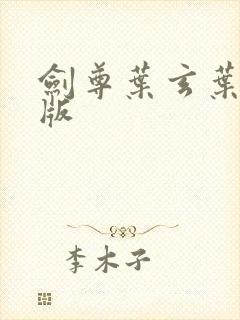 劍尊葉玄葉
版
李木子